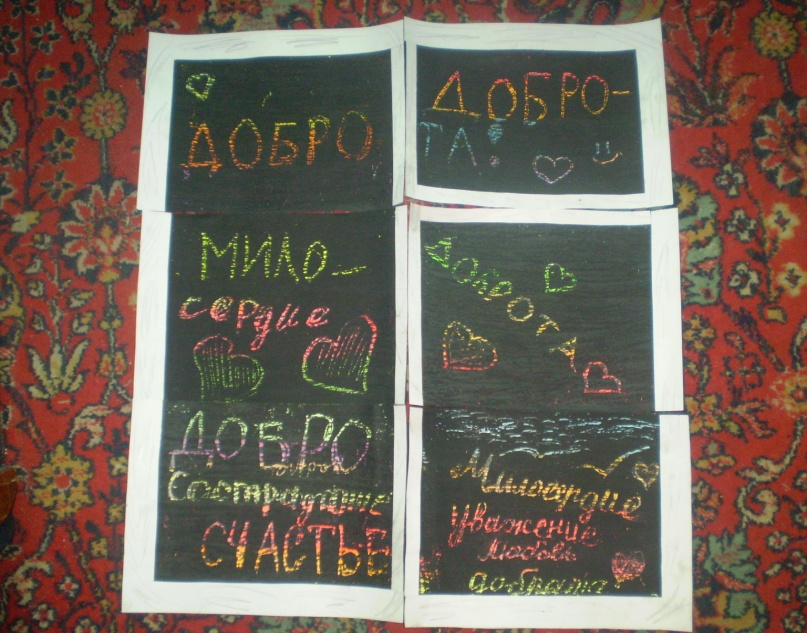 ДОБРО
ДОБРО-
ТА!
МИЛО-
сердие
ДОБРОТА
ДОБРО
Сострадание
СЧАСТЬЕ
Милосердие
Уважение
Любовь